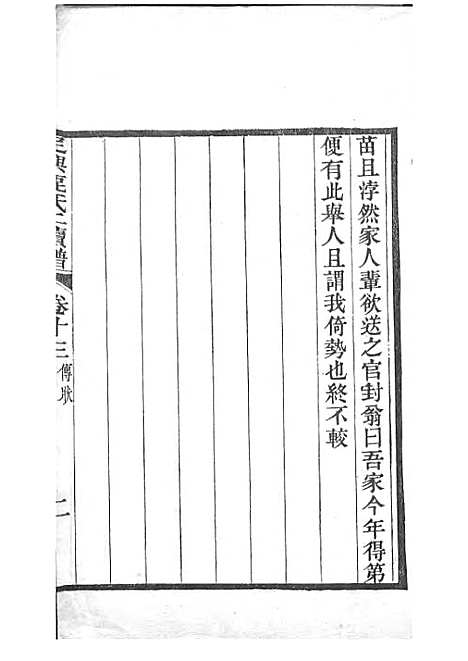 苗且悖然家人輩欲送之官封翁曰吾家今年得第
便有此舉人且謂我倚勢也終不較
定興鹿氏二續譜
卷十三
傳狀